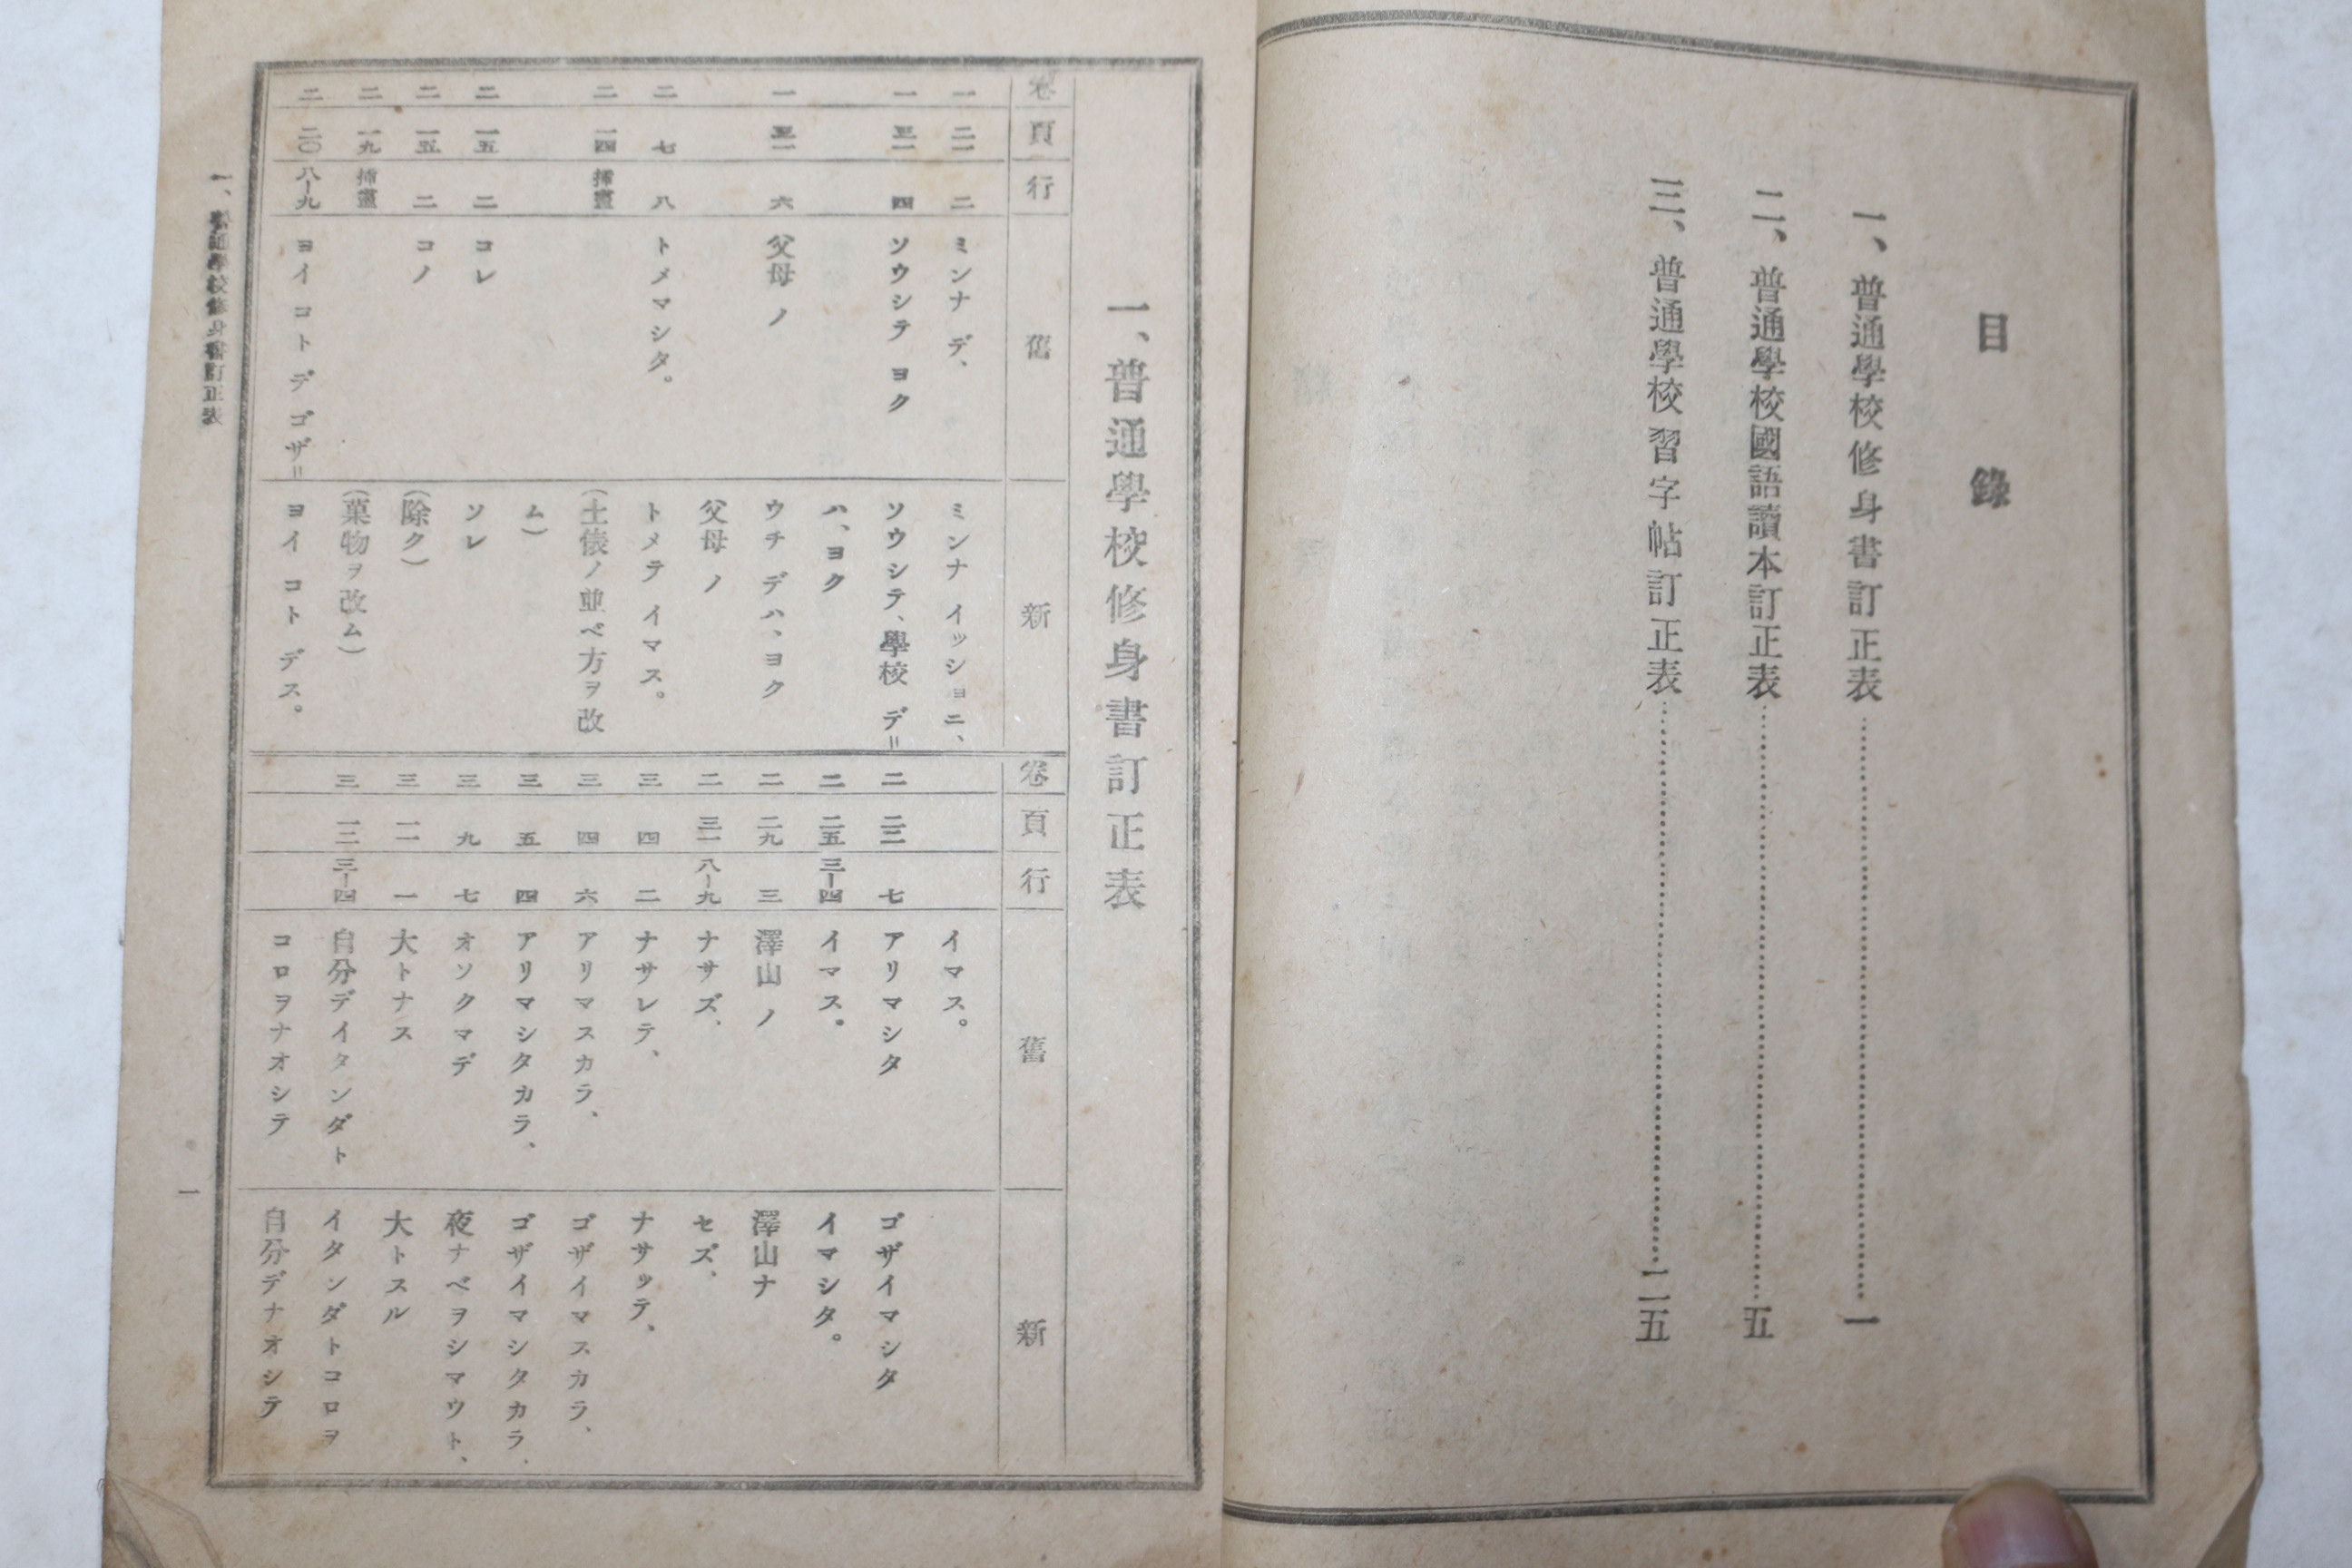 目錄
一、普通學校修身書訂正表…………一
二、普通學校國語讀本訂正表…………五
三、普通學校習字帖訂正表…………二五
一、普通學校修身書訂正表
卷 頁 行 舊 新
一 二一 二 ミンナ デ、 ミンナ イッショニ、
一 三一 四 ソウシテ ヨク ソウシテ、學校 デ=
ハ、ヨク
一 三一 六 父母 ノ ウチ デハ、ヨク
父母 ノ
二 七 八 トメマシタ。 トメテ イマス。
二 一四 挿畫 (土俵ノ並ベ方ヲ改
ム)
二 一五 二 コレ ソレ
二 一五 二 コノ (除ク)
二 一九 挿畫 (菓物ヲ改ム)
二 二〇 八-九 ヨイ コト デ ゴザ= ヨイ コト デス。
卷 頁 行 舊 新
イマス。
二 二三 七 アリマシタ ゴザイマシタ
二 二五 三-四 イマス。 イマシタ。
二 二九 三 澤山 ノ 澤山ナ
二 三一 八-九 ナサズ、 セズ、
三 四 二 ナサレテ、 ナサッテ、
三 四 六 アリマスカラ、 ゴザイマスカラ、
三 五 四 アリマシタカラ、 ゴザイマシタカラ、
三 九 七 オソクマデ 夜ナベヲシマウト、
三 一一 一 大トナス 大トスル
三 一三 三-四 自分デイタンダト イタンダトコロヲ
コロヲナオシテ 自分デナオシテ
一、普通學校修身書訂正表
一